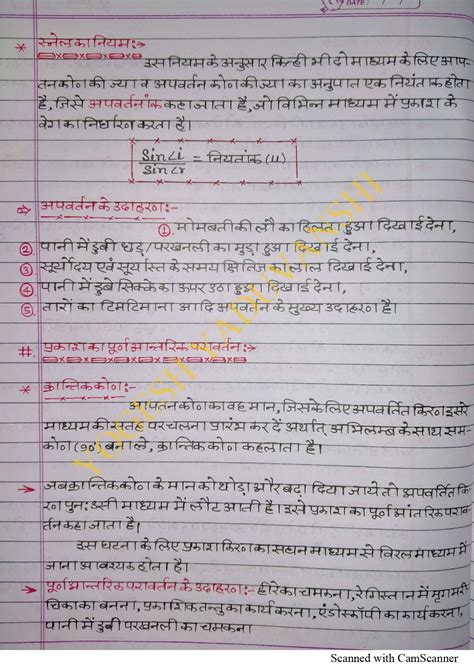 DATE:
* स्नेल का नियम:→
इस नियम के अनुसार किन्ही भी दो माध्यम के लिए आप-
तन कोण की ज्या व अपवर्तन कोण की ज्या का अनुपात एक नियतांक होता
है, जिसे अपवर्तनांक कहा जाता है, जो विभिन्न माध्यम में प्रकाश के
वेग का निर्धारण करता है।
Sin∠i / Sin∠r = नियतांक (μ)
⇒ अपवर्तन के उदाहरण:-
① मोमबती की लौ का हिलता हुआ दिखाई देना,
② पानी में डुबी छड़/परखनली का मुड़ा हुआ दिखाई देना,
③ सूर्योदय एवं सूर्यास्त के समय क्षितिज का लाल दिखाई देना,
④ पानी में डुबे सिक्के का ऊपर उठा हुआ दिखाई देना,
⑤ तारों का टिमटिमाना आदि अपवर्तन के मुख्य उदाहरण है।
#. प्रकाश का पूर्ण आन्तरिक परावर्तन:→
* क्रान्तिक कोण:-
आपतन कोण का वह मान, जिसके लिए अपवर्तित किरण इसरे
माध्यम की सतह पर चलना प्रारंभ कर दें अर्थात् अभिलम्ब के साथ सम-
कोण (90°) बना ले, क्रान्तिक कोण कहलाता है।
→ जब क्रान्तिक कोण के मान को थोड़ा और बढ़ा दिया जाये तो अपवर्तित कि-
रण पुनः उसी माध्यम में लौट आती है। इसे प्रकाश का पूर्ण आंतरिक पराव-
र्तन कहा जाता है।
इस घटना के लिए प्रकाश किरण का सघन माध्यम से विरल माध्यम में
जाना आवश्यक होता है।
→ पूर्ण आन्तरिक परावर्तन के उदाहरण:- हीरे का चमकना, रेगिस्तान में मृगमरी-
चिका का बनना, प्रकाशिक तन्तु का कार्य करना, एंडोस्कॉपी का कार्य करना,
पानी में डुबी परखनली का चमकना
YOGESH YADUVANSHI
Scanned with CamScanner